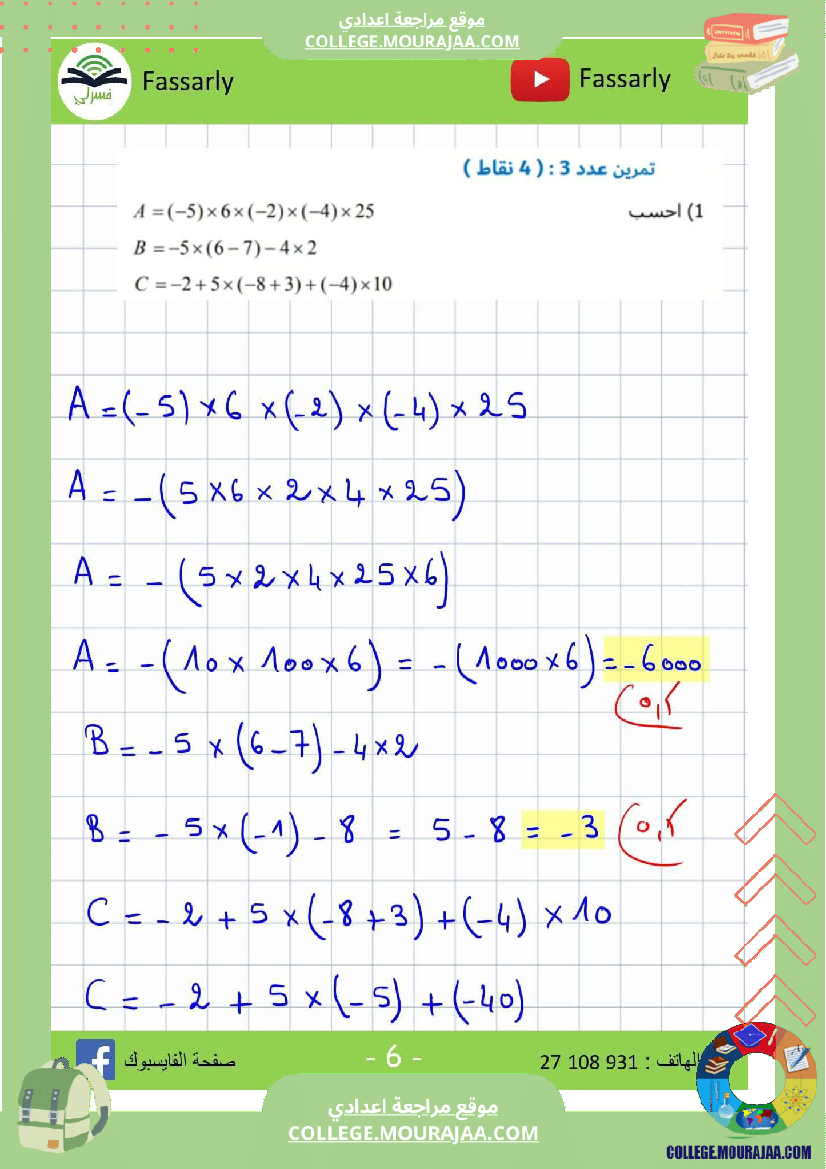 موقع مراجعة اعدادي
COLLEGE.MOURAJAA.COM
فسرلي Fassarly
Fassarly
تمرين عدد 3 : ( 4 نقاط )
1) احسب
A = (−5)×6×(−2)×(−4)×25
B = −5×(6−7)−4×2
C = −2+5×(−8+3)+(−4)×10
A = (-5) × 6 × (-2) × (-4) × 25
A = -(5 × 6 × 2 × 4 × 25)
A = -(5 × 2 × 4 × 25 × 6)
A = -(10 × 100 × 6) = -(1000 × 6) = -6000
B = -5 × (6-7) - 4 × 2
B = -5 × (-1) - 8 = 5 - 8 = -3
C = -2 + 5 × (-8+3) + (-4) × 10
C = -2 + 5 × (-5) + (-40)
صفحة الفايسبوك
- 6 -
الهاتف : 27 108 931
موقع مراجعة اعدادي
COLLEGE.MOURAJAA.COM
COLLEGE.MOURAJAA.COM